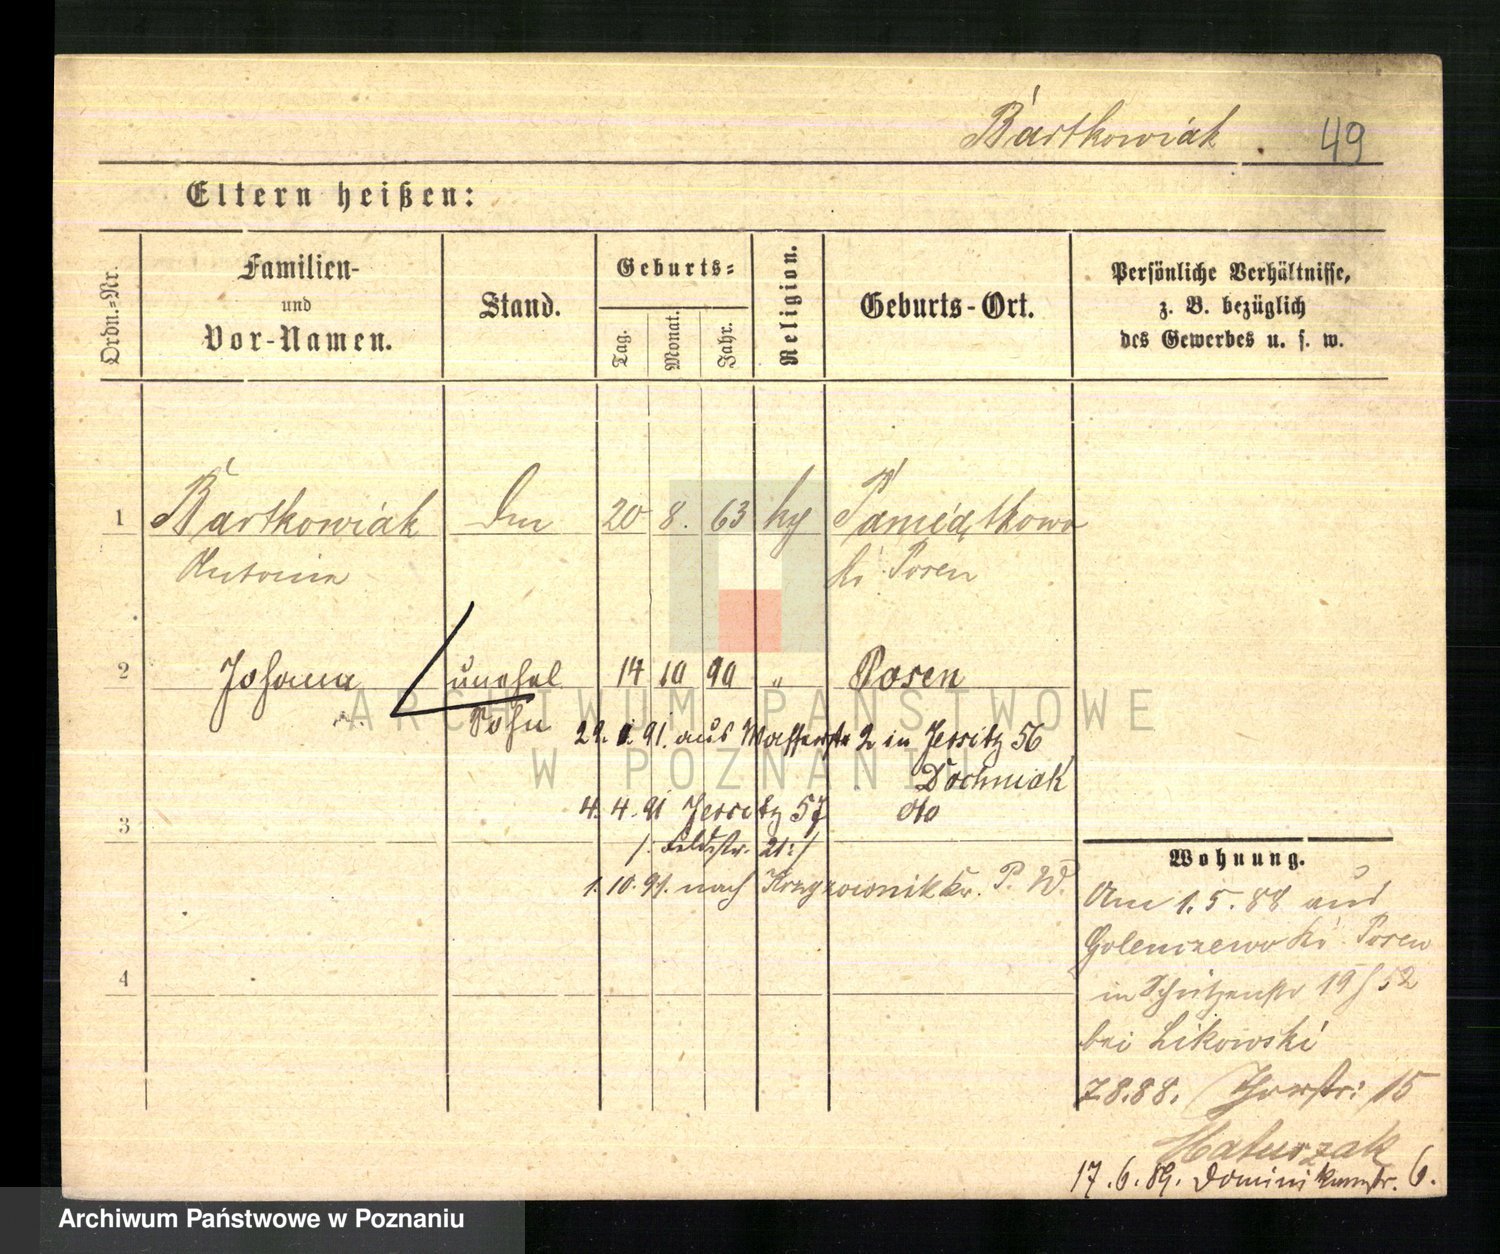 Bartkowiak 49
Eltern heißen:
Ordn.-Nr.
Familien-
und
Vor-Namen.
Stand.
Geburts-
Tag.
Monat.
Jahr.
Religion.
Geburts-Ort.
Persönliche Verhältnisse,
z. B. bezüglich
des Gewerbes u. s. w.
1 Bartkowiak 20 8. 63 Pamiątkowo
Posen
2 unehel 14 10 90 „ Posen
Sohn
91. aus Wasserstr 2 in Jersitz 56
Dochniak
4. 4. 91 Jersitz 57 dto
3
/: Feldstr. 21:/
1. 10. 91. nach P. W.
4
Wohnung.
Am 1. 5. 88 aus
Golenczewo Kr. Posen
in Schützenstr 19/52
bei Likowski
7 8. 88. Thorstr: 15
17. 6. 89. Dominikanerstr. 6.
ARCHIWUM PAŃSTWOWE
W POZNANIU
Archiwum Państwowe w Poznaniu